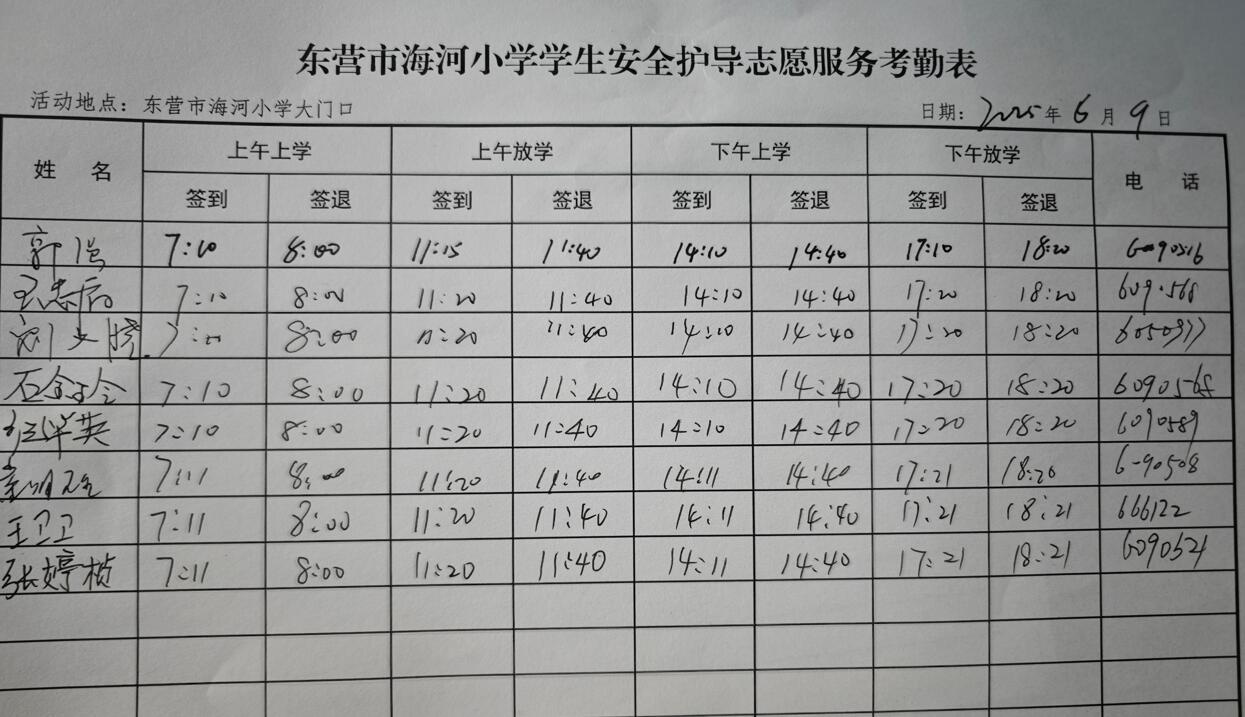 东营市海河小学学生安全护导志愿服务考勤表
活动地点：东营市海河小学大门口 日期：2025年6月9日
姓名 上午上学 上午放学 下午上学 下午放学 电话
签到 签退 签到 签退 签到 签退 签到 签退
郭强 7:10 8:00 11:15 11:40 14:10 14:40 17:10 18:20 6090516
7:10 8:00 11:20 11:40 14:10 14:40 17:20 18:20 6090568
8:00 11:20 11:40 14:10 14:40 17:20 18:20
7:10 8:00 11:20 11:40 14:10 14:40 17:20 18:20 6090568
7:10 8:00 11:20 11:40 14:10 14:40 17:20 18:20 6090589
7:11 8:00 11:20 11:40 14:11 14:40 17:21 18:20 6090508
王卫卫 7:11 8:00 11:20 11:40 14:11 14:40 17:21 18:21 666122
张婷桢 7:11 8:00 11:20 11:40 14:11 14:40 17:21 18:21 6090521